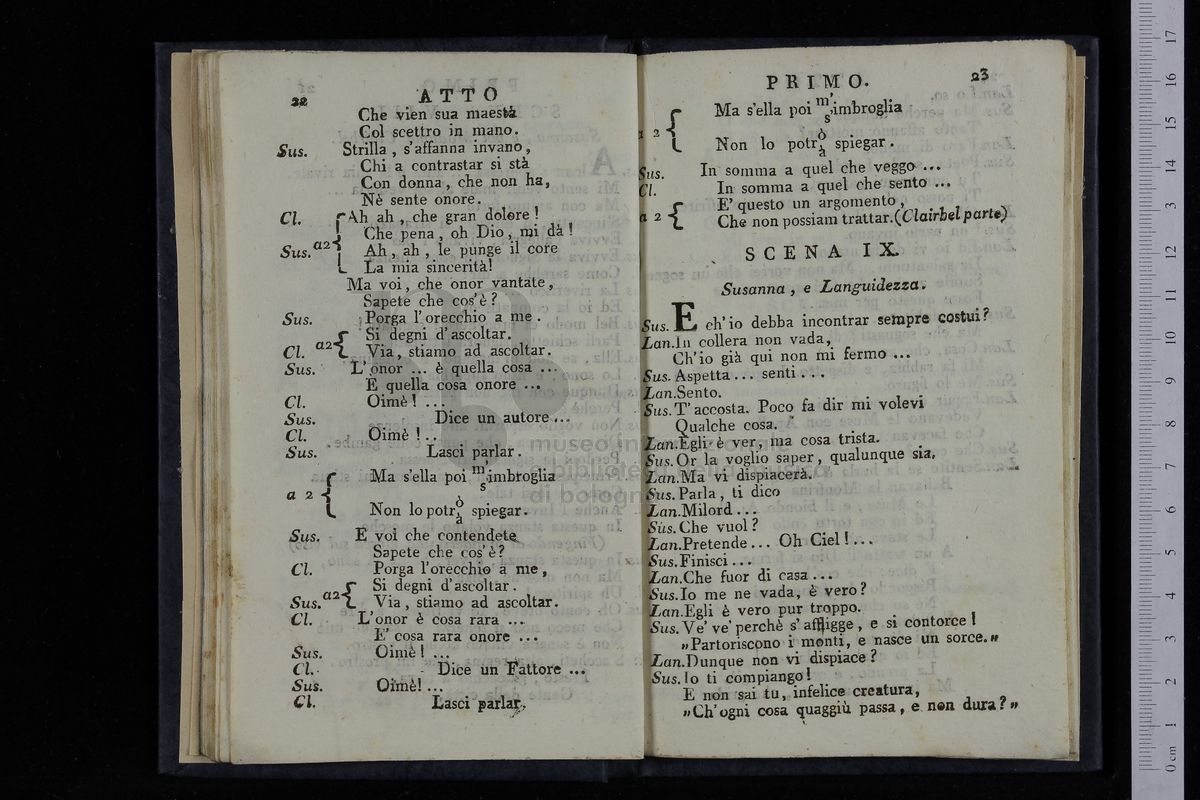 22
ATTO
Che vien sua maestà
Col scettro in mano.
Sus. Strilla, s'affanna invano,
Chi a contrastar si stà
Con donna, che non ha,
Nè sente onore.
Cl. Ah ah, che gran dolore!
Che pena, oh Dio, mi dà!
Sus. a2 Ah, ah, le punge il core
La mia sincerità!
Ma voi, che onor vantate,
Sapete che cos'è?
Sus. Porga l'orecchio a me.
a2 Si degni d'ascoltar.
Cl. Via, stiamo ad ascoltar.
Sus. L'onor ... è quella cosa ...
E quella cosa onore ...
Cl. Oimè! ...
Sus. Dice un autore ...
Cl. Oimè! ..
Sus. Lasci parlar.
a 2 Ma s'ella poi m'/s'imbroglia
Non lo potrò/à spiegar.
Sus. E voi che contendete
Sapete che cos'è?
Cl. Porga l'orecchio a me,
a2 Si degni d'ascoltar.
Sus. Via, stiamo ad ascoltar.
Cl. L'onor è cosa rara ...
E' cosa rara onore ...
Sus. Oimè! ...
Cl. Dice un Fattore ...
Sus. Oimè! ...
Cl. Lasci parlar.
PRIMO.
23
a 2 Ma s'ella poi m'/s'imbroglia
Non lo potrò/à spiegar.
Sus. In somma a quel che veggo ...
Cl. In somma a quel che sento ...
a 2 E' questo un argomento,
Che non possiam trattar. (Clairbel parte)
SCENA IX.
Susanna, e Languidezza.
Sus. E ch'io debba incontrar sempre costui?
Lan. In collera non vada,
Ch'io già qui non mi fermo ...
Sus. Aspetta... senti...
Lan. Sento.
Sus. T'accosta. Poco fa dir mi volevi
Qualche cosa.
Lan. Egli è ver, ma cosa trista.
Sus. Or la voglio saper, qualunque sia.
Lan. Ma vi dispiacerà.
Sus. Parla, ti dico
Lan. Milord...
Sus. Che vuol?
Lan. Pretende... Oh Ciel!...
Sus. Finisci...
Lan. Che fuor di casa...
Sus. Io me ne vada, è vero?
Lan. Egli è vero pur troppo.
Sus. Ve' ve' perchè s'affligge, e si contorce!
„Partoriscono i monti, e nasce un sorce.„
Lan. Dunque non vi dispiace?
Sus. Io ti compiango!
E non sai tu, infelice creatura,
„Ch'ogni cosa quaggiù passa, e non dura?„
museo
biblioteca della musica
di bologna
0 cm 1 2 3 4 5 6 7 8 9 10 11 12 13 14 15 16 17